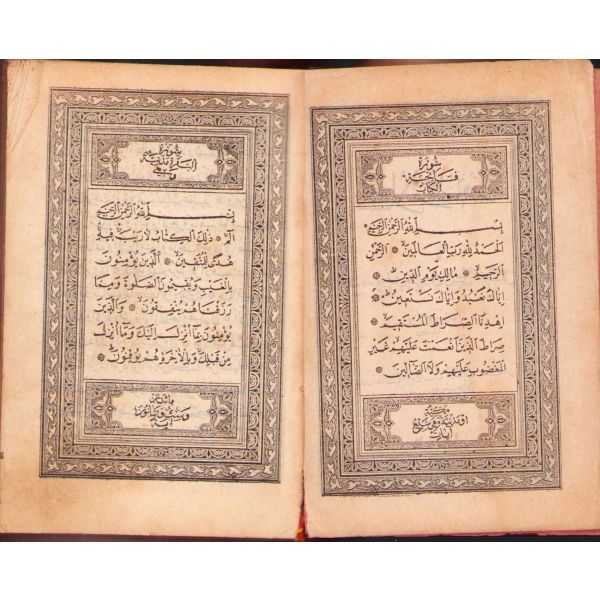 سورة
فاتحة
الكتاب
بسم الله الرحمن الرحيم
الحمد لله رب العالمين الرحمن
الرحيم مالك يوم الدين
اياك نعبد واياك نستعين
اهدنا الصراط المستقيم
صراط الذين انعمت عليهم غير
المغضوب عليهم ولا الضالين
سورة
البقرة مدنية
وهي
بسم الله الرحمن الرحيم
الم ذلك الكتاب لا ريب فيه
هدى للمتقين الذين يؤمنون
بالغيب ويقيمون الصلوة ومما
رزقناهم ينفقون والذين
يؤمنون بما انزل اليك وما انزل
من قبلك وبالاخرة هم يوقنون
مائتان
وست وثمانون
آية